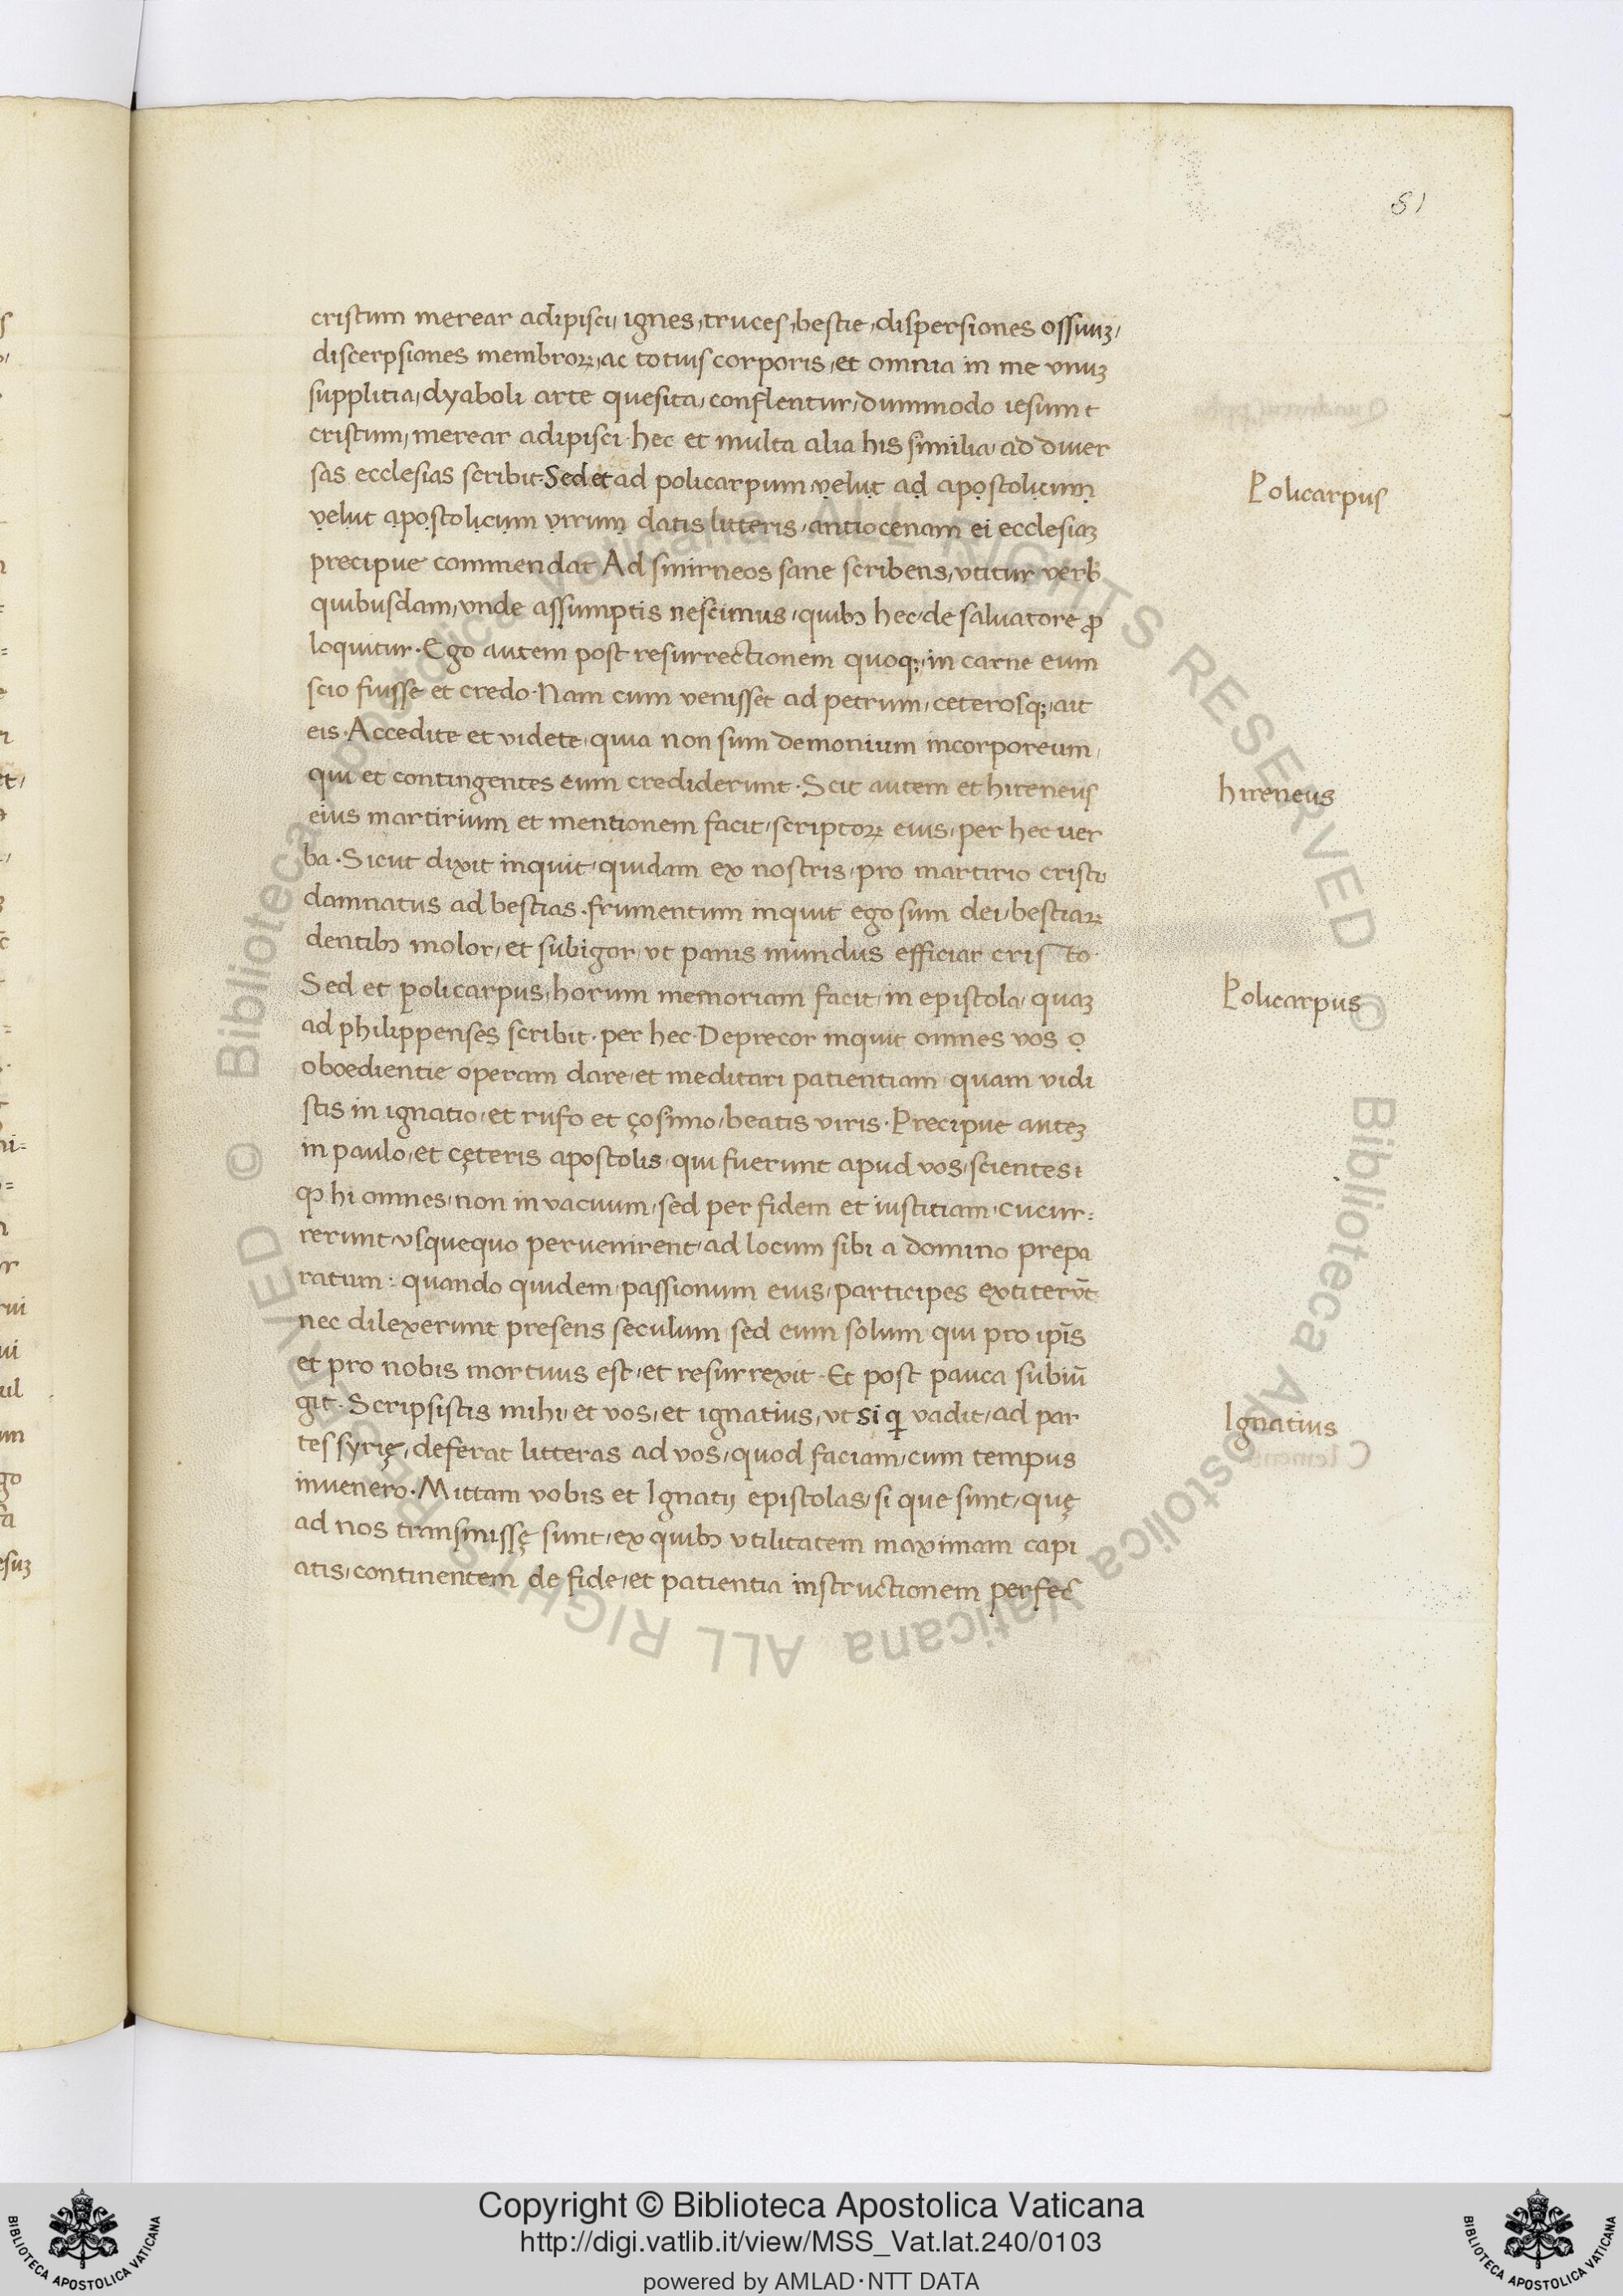 81
cristum merear adipisci, ignes, truces, bestie, dispersiones ossuuꝫ,
discerpsiones membroꝝ, ac totius corporis, et omnia in me vnuꝫ
supplitia, dyaboli arte quesita, conflentur, dummodo iesum t
cristum, merear adipisci · hec et multa alia his similia, ad diuer
sas ecclesias scribit · Sed et ad policarpum velut ad apostolicum
velut apostolicum virum datis litteris, antiocenam ei ecclesiaꝫ
precipue commendat Ad smirneos sane scribens, vtitur verb
quibusdam, vnde assumptis nescimus, quibꝫ hec, de saluatore ꝓ
loquitur · Ego autem post resurrectionem quoqꝫ, in carne eum
scio fuisse et credo · Nam cum venisset ad petrum, ceterosqꝫ, ait
eis · Accedite et videte, quia non sum demonium incorporeum,
qui et contingentes eum crediderunt · Scit autem et hireneus
eius martirium et mentionem facit, scriptoꝝ eius, per hec uer
ba · Sicut dixit inquit, quidam ex nostris, pro martirio cristi
damnatus ad bestias · frumentum inquit ego sum dei, bestiaꝝ
dentibꝫ molor, et subigor, vt panis mundus efficiar cristo ·
Sed et policarpus, horum memoriam facit, in epistola, quaꝫ
ad philippenses scribit · per hec · Deprecor inquit omnes vos o
oboedientie operam dare, et meditari patientiam quam vidi
stis in ignatio, et rufo et çosimo, beatis viris · Precipue auteꝫ
in paulo, et cęteris apostolis, qui fuerunt apud vos, scientes i
ꝙ hi omnes, non in vacuum, sed per fidem et iustitiam, cucur=
rerunt, vsquequo peruenirent, ad locum sibi a domino prepa
ratum : quando quidem, passionum eius, participes extiterūt
nec dilexerunt presens seculum sed eum solum qui pro ip̄is
et pro nobis mortuus est, et resurrexit · Et post pauca subiū
git · Scripsistis mihi, et vos, et ignatius, vt si qͥ vadit, ad par
tes syrię, deferat litteras ad vos, quod faciam, cum tempus
inuenero · Mittam vobis et Ignatij epistolas, si que sunt, quę
ad nos transmissę sunt, ex quibꝫ vtilitatem maximam capi
atis, continentem de fide, et patientia instructionem perfec̄
Policarpus
hireneus
Policarpus
Ignatius
Copyright © Biblioteca Apostolica Vaticana
http://digi.vatlib.it/view/MSS_Vat.lat.240/0103
powered by AMLAD·NTT DATA
BIBLIOTECA APOSTOLICA VATICANA
BIBLIOTECA APOSTOLICA VATICANA
© Biblioteca Apostolica Vaticana ALL RIGHTS RESERVED
© Biblioteca Apostolica Vaticana ALL RIGHTS RESERVED